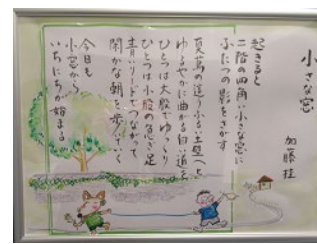 小さな窓
加藤桂
起きると
二階の四角い小さな窓に
ふたつの影をさがす
ゆるやかに曲がる白い道を
ひとつは大股でゆっくり
ひとつは小股の急ぎ足
青いリードでつながって
閑かな朝を歩いてく
今日も
小窓から
いちにちが始まる